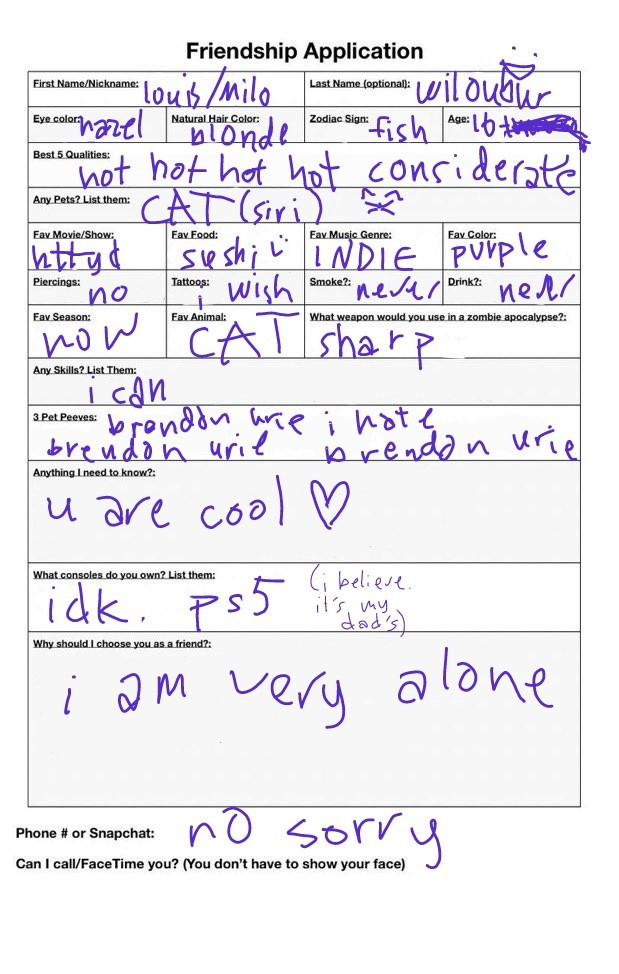 Friendship Application
First Name/Nickname: louis/milo Last Name (optional): wiloubur
Eye color: hazel Natural Hair Color: blonde Zodiac Sign: fish Age: 16
Best 5 Qualities: hot hot hot hot considerate
Any Pets? List them: CAT (siri)
Fav Movie/Show: httyd Fav Food: sushi Fav Music Genre: INDIE Fav Color: purple
Piercings: no Tattoos: i wish Smoke?: never Drink?: never
Fav Season: now Fav Animal: CAT What weapon would you use in a zombie apocalypse?: sharp
Any Skills? List Them:
i can
3 Pet Peeves: brendon urie i hate
brendon urie brendon urie
Anything I need to know?:
u are cool ♡
What consoles do you own? List them:
idk. ps5 (i believe.
it's my
dad's)
Why should I choose you as a friend?:
i am very alone
Phone # or Snapchat: no sorry
Can I call/FaceTime you? (You don't have to show your face)